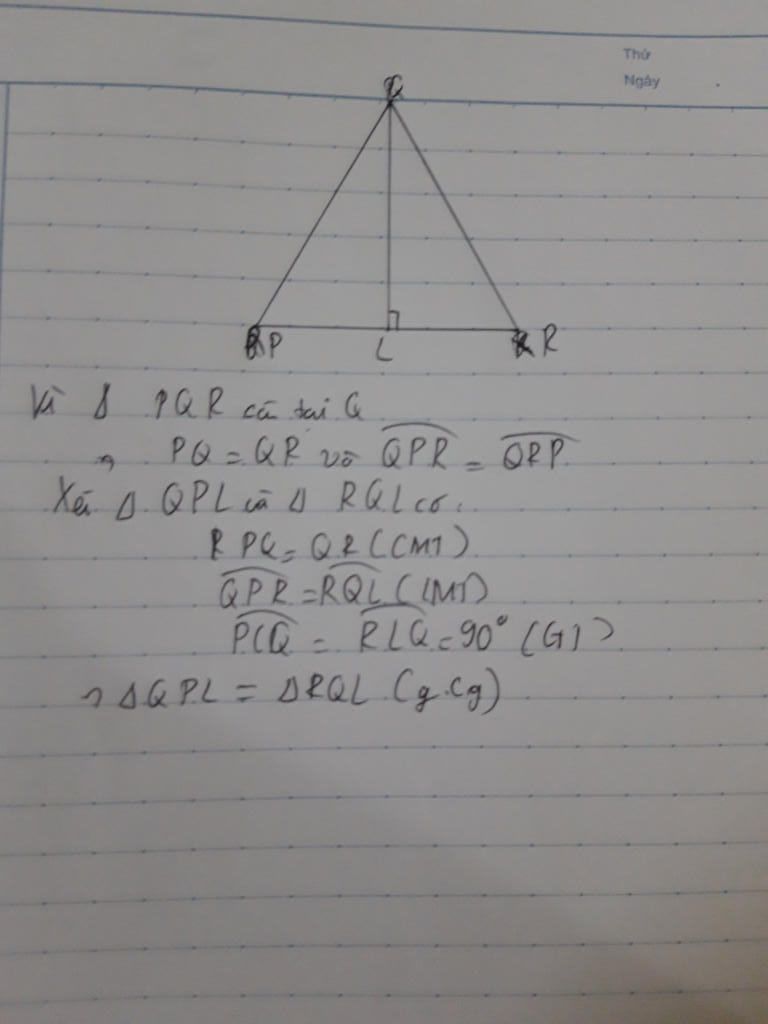 Thứ
Ngày
Q
P L R
Vì Δ PQR cân tại Q
⇒ PQ = QR và QPR = QRP
Xét Δ QPL và Δ RQL có:
PQ = QR (CMT)
QPR = RQL (CMT)
PLQ = RLQ = 90° (GT)
⇒ Δ QPL = Δ RQL (g.c.g)